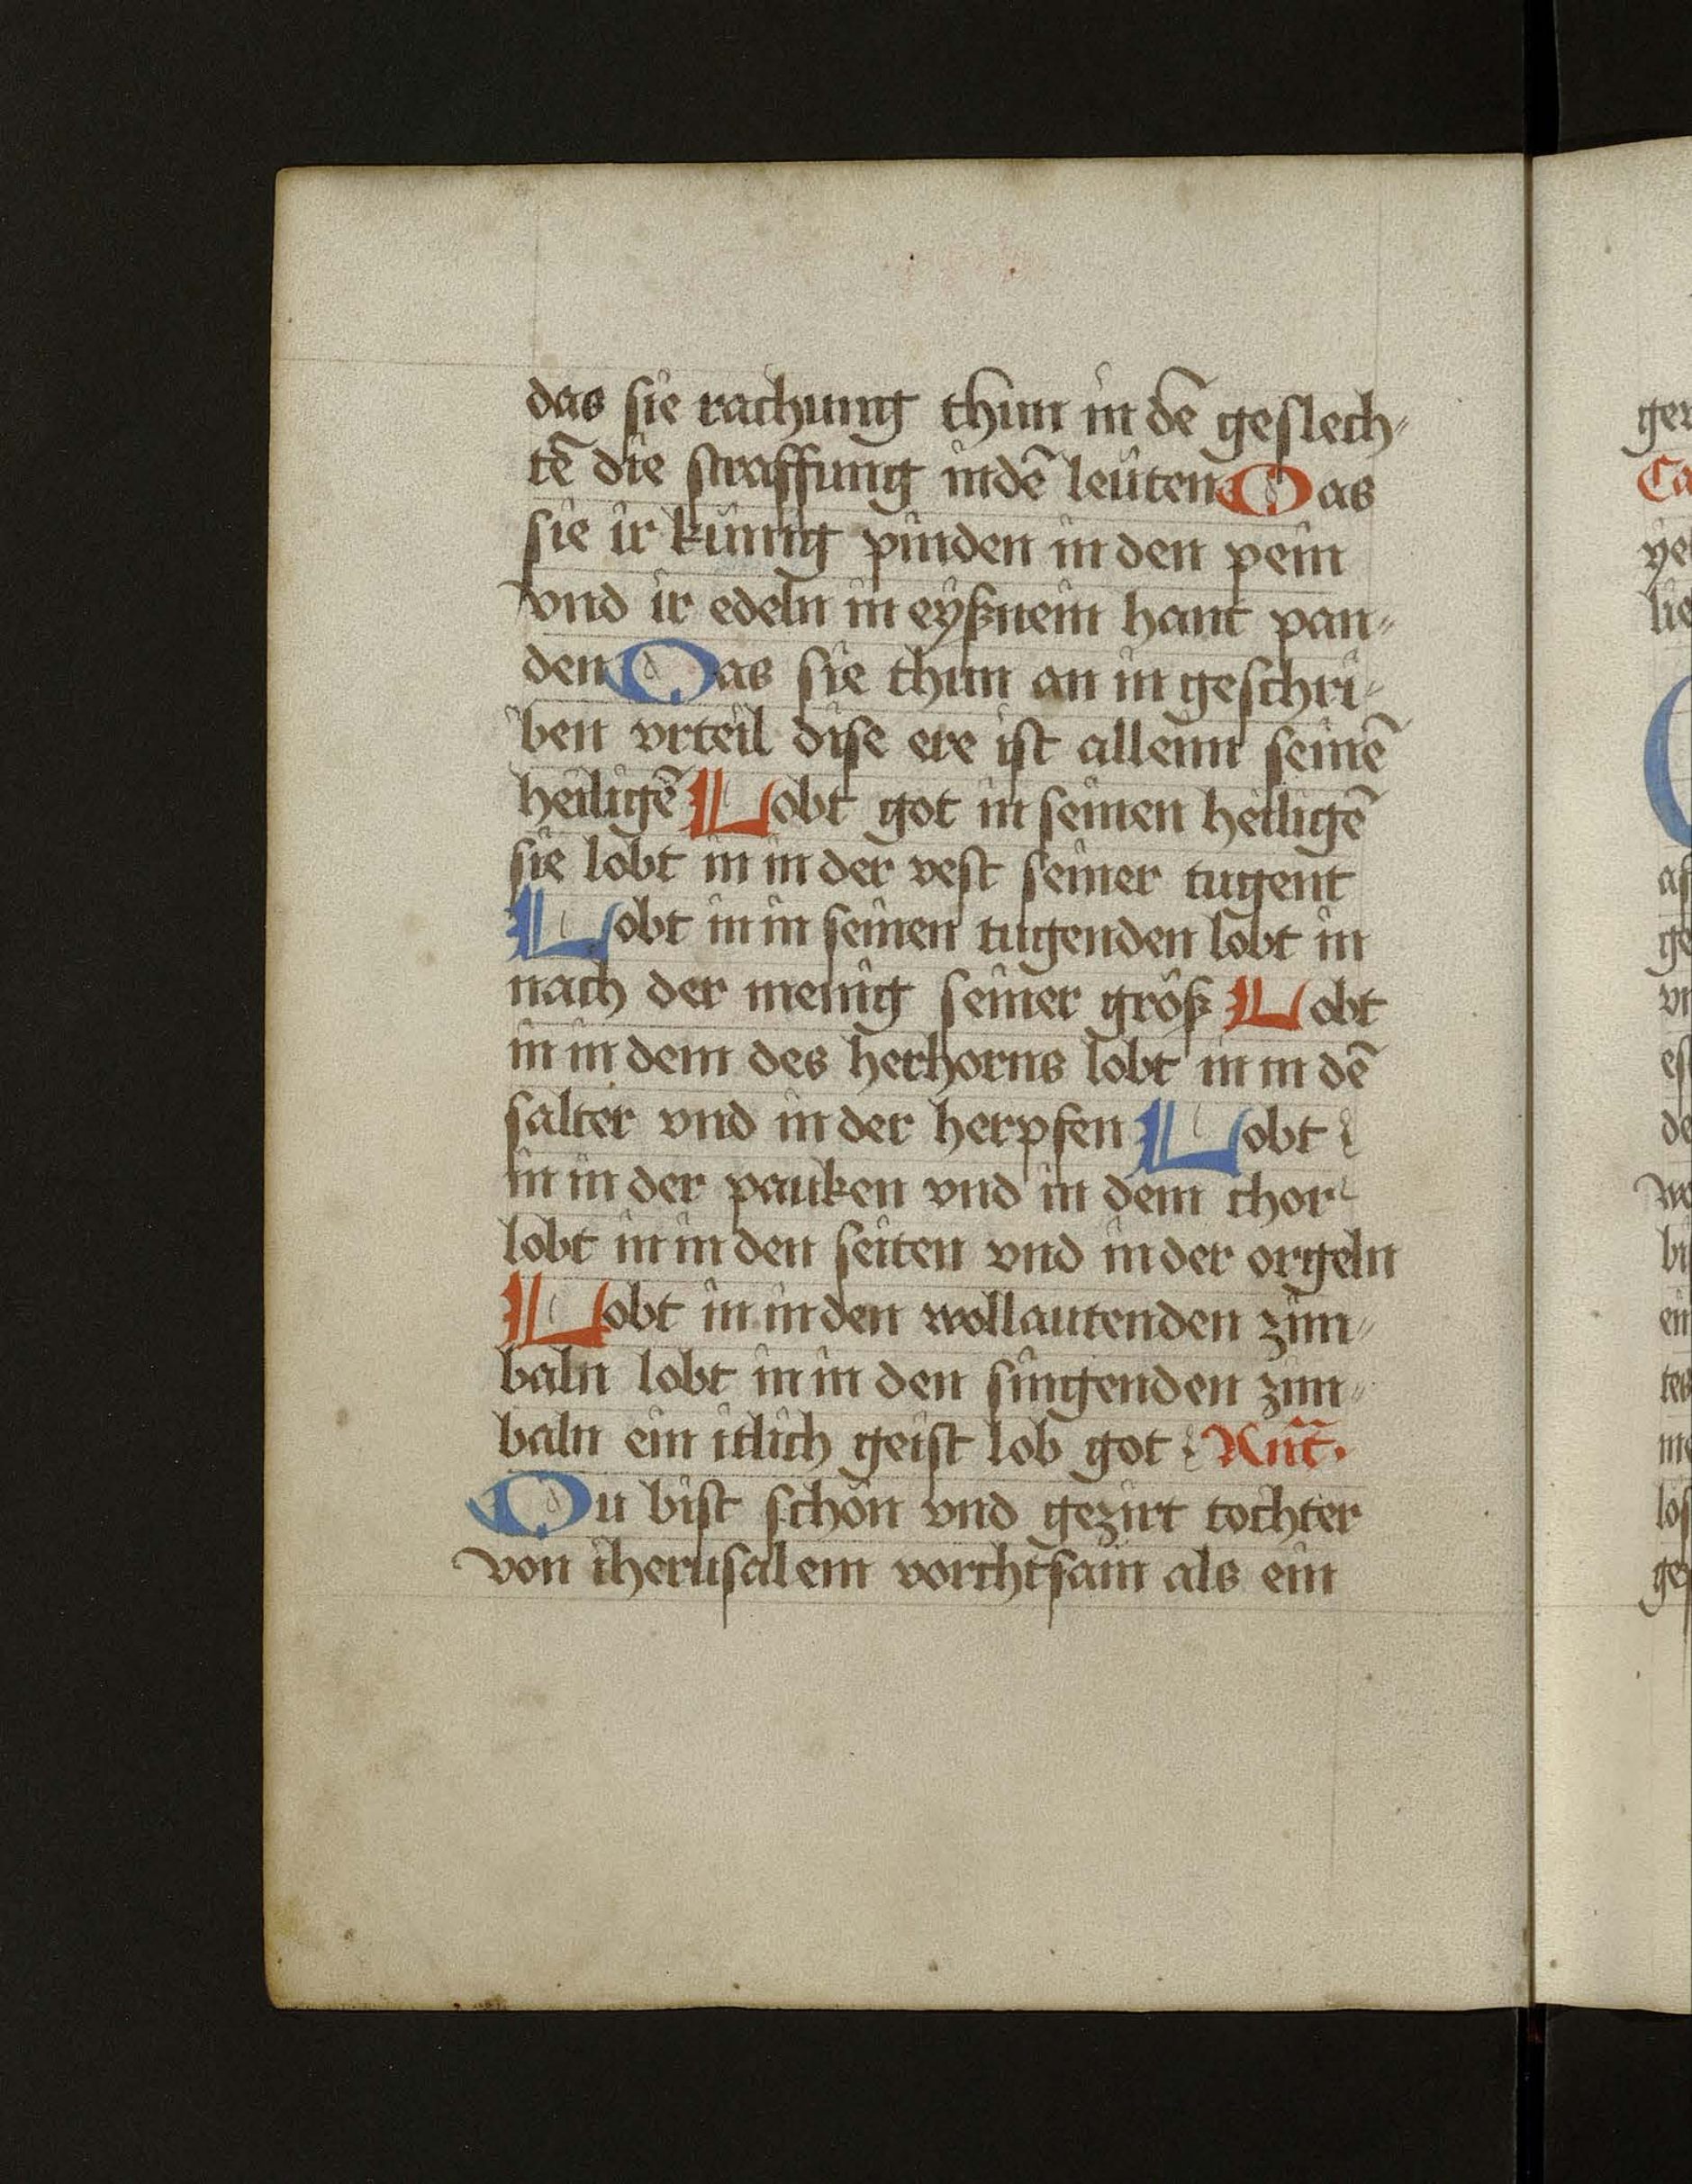 das sie rachung thun in dē geslech⸗
tē die straffung in dē leüten Das
sie ir künig pinden in den pein
vnd ir edeln in eyßnein hant pan⸗
den Das sie thun an in geschri⸗
ben vrteil dise ere ist allein seinē
heiligē Lobt got in seinen heiligē
sie lobt in in der vest seiner tugent
Lobt in in seinen tugenden lobt in
nach der menig seiner größ Lobt
in in dem des herhorns lobt in in dē
salter vnd in der herpfen Lobt
in in der pauken vnd in dem chor
lobt in in den seiten vnd in der orgeln
Lobt in in den wollautenden zim⸗
baln lobt in in den singenden zim⸗
baln ein itlich geist lob got Ant̄.
Du bist schön vnd gezirt tochter
von iherusalem vorchtsam als ein